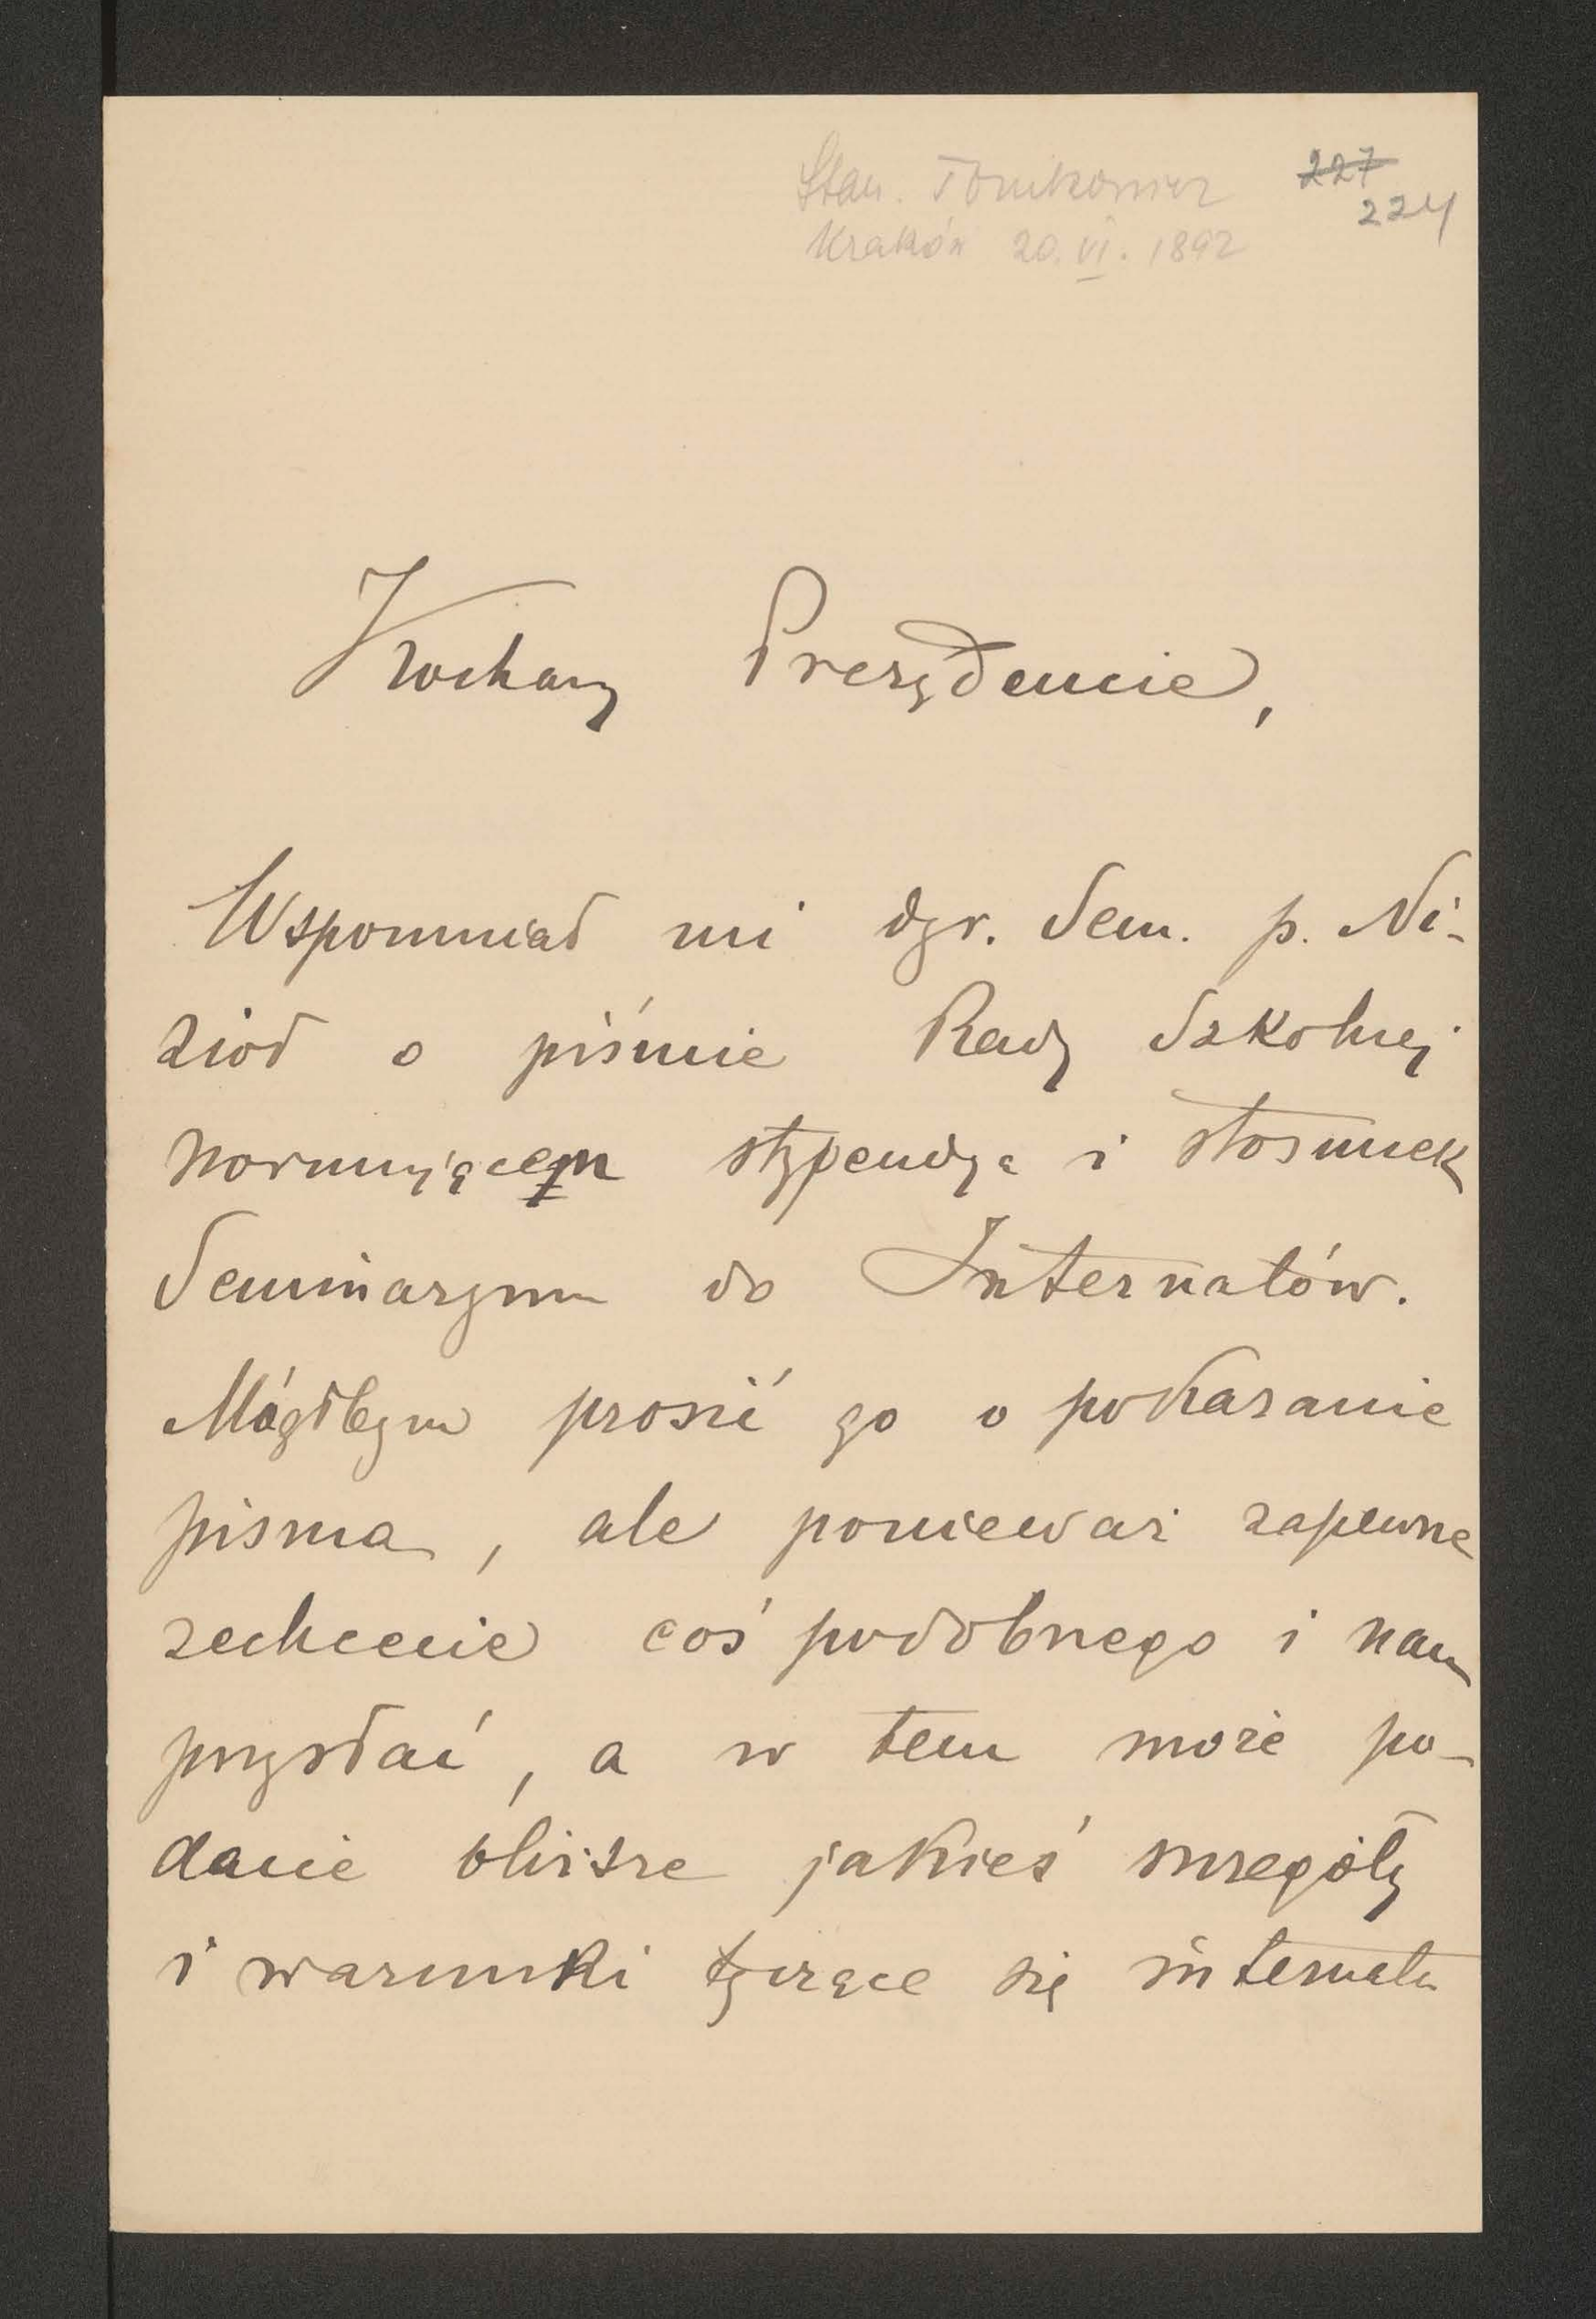 Stan. Tomkowicz 227
Kraków 20. VI. 1892 224
Kochany Prezydencie,
Wspomniał mi dyr. Sem. p. Ni-
zioł o piśmie Rady Szkolnej
normującem stypendya i stosunek
Seminaryum do Internatów.
Mógłbym prosić go o pokazanie
pisma, ale ponieważ zapewne
zechcecie coś podobnego i nam
przysłać, a w tem może po-
dacie bliższe jakieś szczegóły
i warunki tyczące się internatu